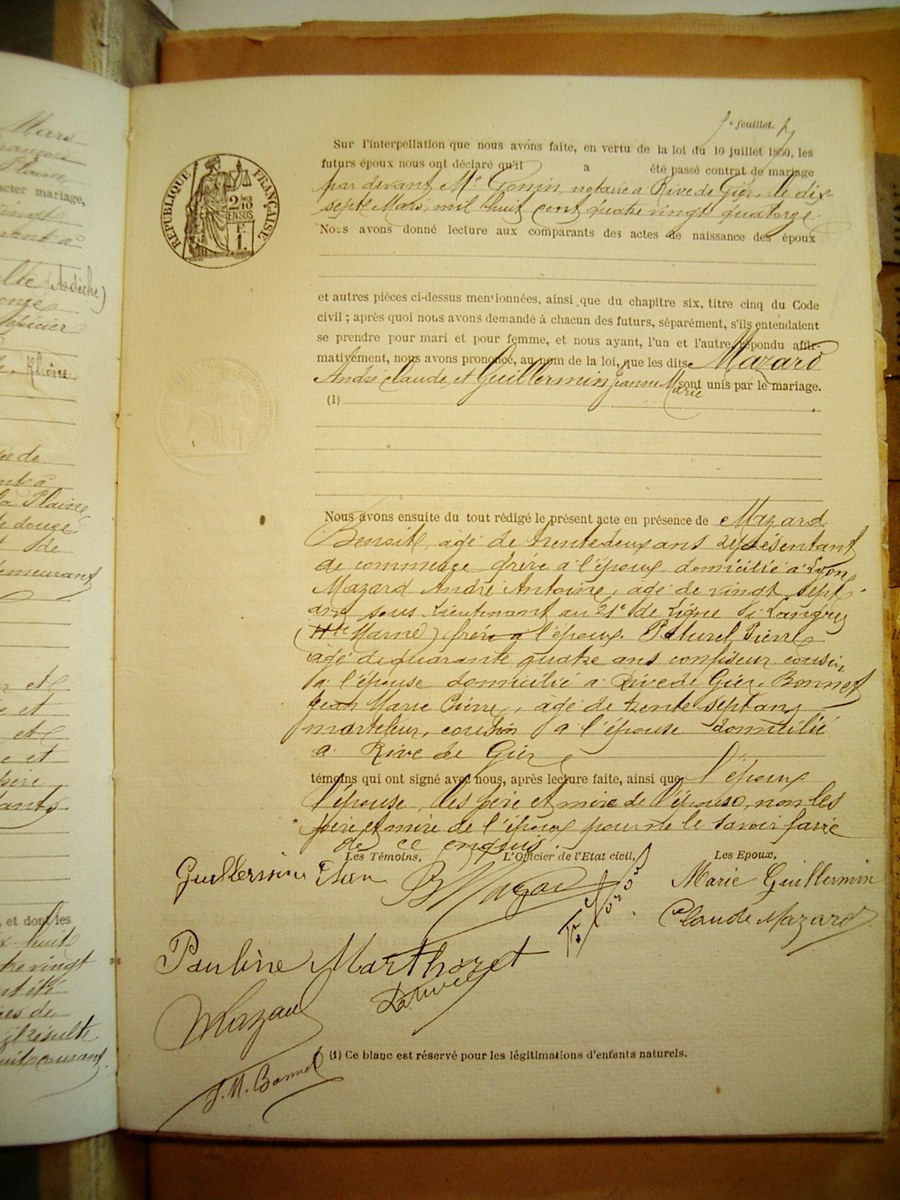 Mars
mariage,
vingt
(Ardèche)
Rhône
de
la Plaine
de
demeurant
et
et
et
et
père
, et dont les
huit
vingt
été
de
il résulte
courant
feuillet.
RÉPUBLIQUE FRANÇAISE
2/10
EN SUS
F.
1.
Sur l'interpellation que nous avons faite, en vertu de la loi du 10 juillet 1850, les
futurs époux nous ont déclaré qu'il a été passé contrat de mariage
par devant Me Gonin, notaire à Rive de Gier, le dix
sept Mars, mil huit cent quatre vingt quatorze.
Nous avons donné lecture aux comparants des actes de naissance des époux
et autres pièces ci-dessus mentionnées, ainsi que du chapitre six, titre cinq du Code
civil ; après quoi nous avons demandé à chacun des futurs, séparément, s'ils entendaient
se prendre pour mari et pour femme, et nous ayant, l'un et l'autre répondu affir-
mativement, nous avons prononcé, au nom de la loi, que les dits Mazard
André Claude, et Guillermin Jeanne Marie sont unis par le mariage.
(1)
Nous avons ensuite du tout rédigé le présent acte en présence de Mazard
Benoit, agé de trente deux ans représentant
de commerce frère à l'époux domicilié à Lyon
Mazard André Antoine, agé de vingt sept
ans sous Lieutenant au 21e de Ligne à Langres
(Hte Marne) frère à l'époux Paturel Pierre
agé de quarante quatre ans confiseur cousin
à l'épouse domicilié à Rive de Gier, Bonnet
Jean Marie Pierre, agé de trente sept ans
marteleur, cousin à l'épouse domicilié
à Rive de Gier
témoins qui ont signé avec nous, après lecture faite, ainsi que l'époux
l'épouse, les père et mère de l'épouse, non les
père et mère de l'époux pour ne le savoir faire
de ce enquis.
Les Témoins, L'Officier de l'Etat civil, Les Epoux,
Guillermin B Mazard Marie Guillermin
Claude Mazard
Pauline Marthozet
Paturel
Mazard
(1) Ce blanc est réservé pour les légitimations d'enfants naturels.
J. M. Bonnet